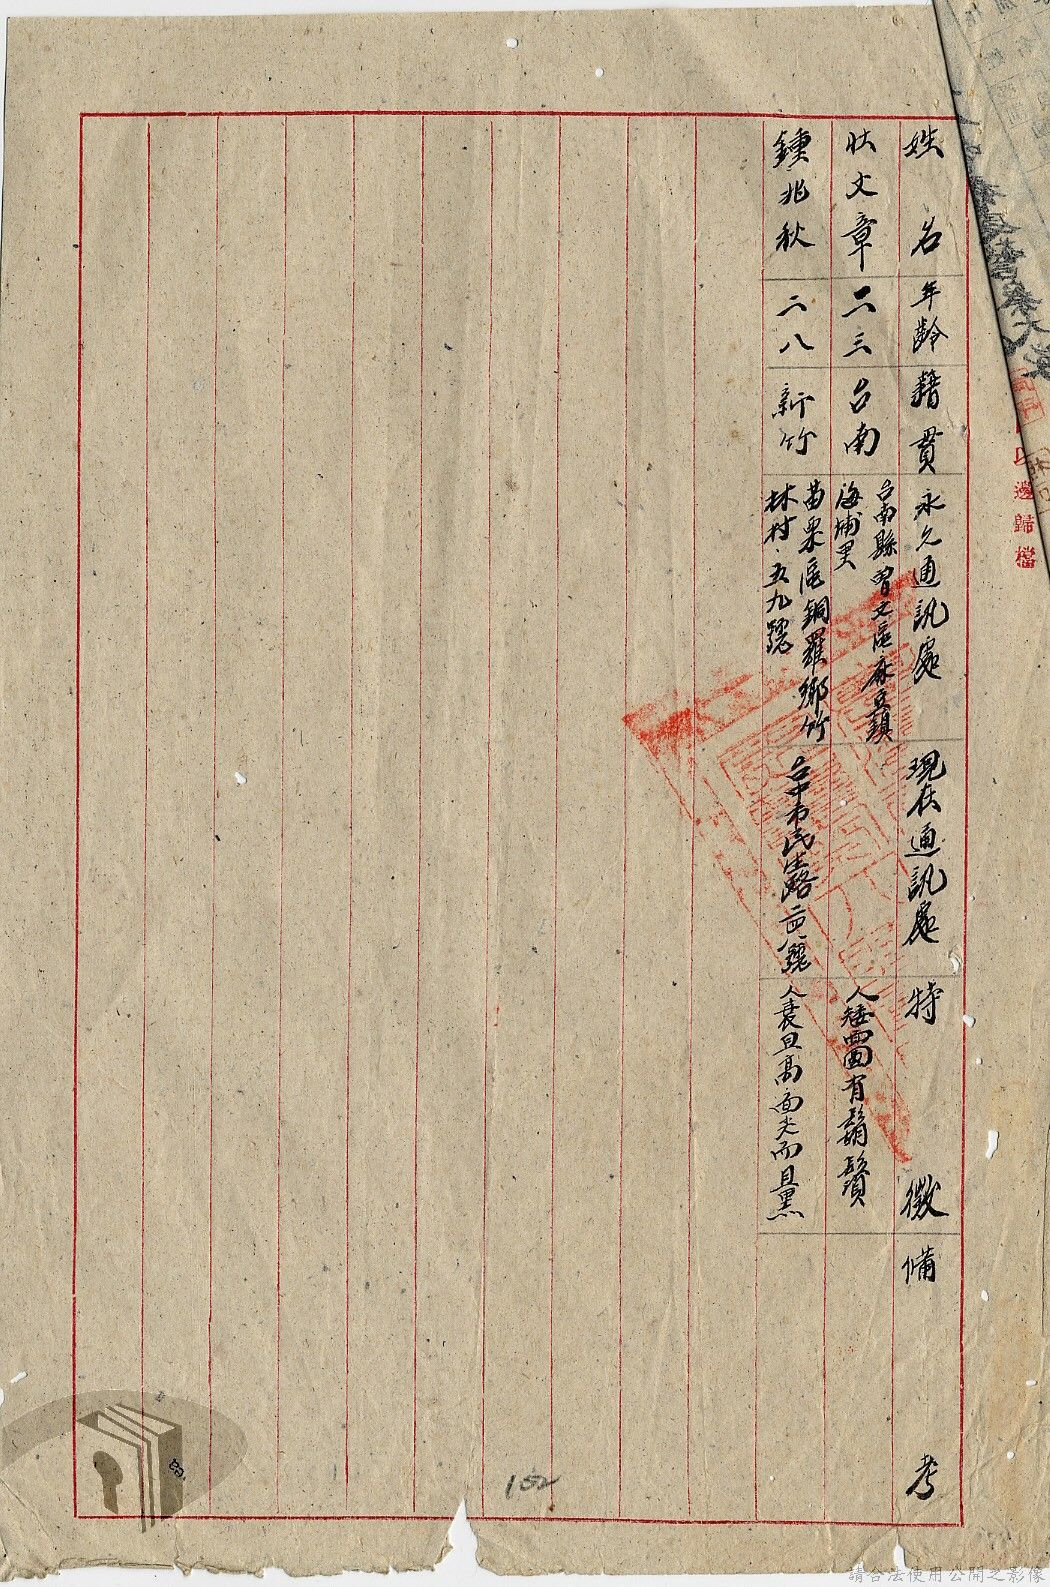 姓名 年齡 籍貫 永久通訊處 現在通訊處 特徵 備考
文章 二三 台南 台南縣曾文區麻豆鎮
海埔里
人矮面圓有鬍鬚
鍾兆秋 二八 新竹 苗栗區銅羅鄉竹
林村·五九號
台中市民生路 號
人衰且高面尖而且黑
邊歸檔
152
請合法使用公開之影像